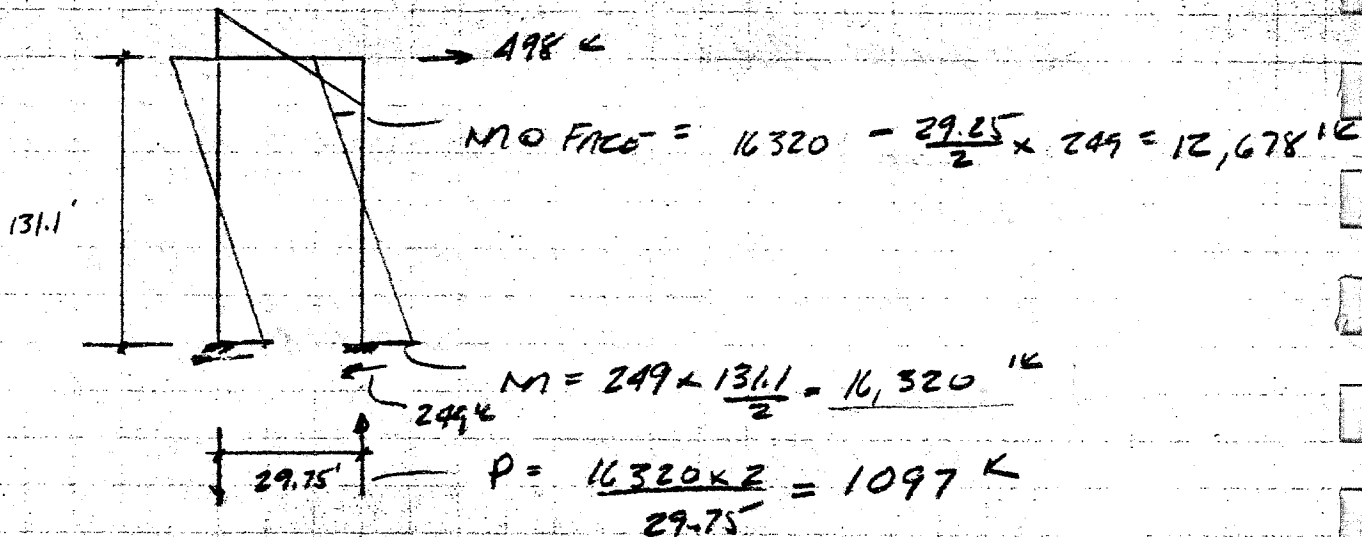 498 K
M @ FACE = 16320 - 29.25/2 x 249 = 12,678 'K
131.1'
M = 249 x 131.1/2 = 16,320 'K
249 K
29.75'
P = 16320 x 2 / 29.75 = 1097 K